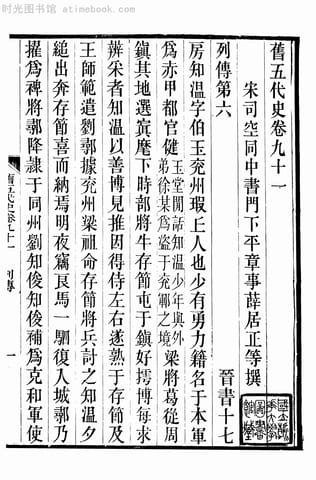 时光图书馆 - atimebook.com
舊五代史卷九十一
宋司空同中書門下平章事薛居正等撰
晉書十七
列傳第六
房知溫字伯玉兗州瑕上人也少有勇力籍名于本軍
為赤甲都官健玉堂閒話知溫少年與外弟徐某為盜于兗鄆之境梁將葛從周
鎮其地選寘麾下時部將牛存節屯于鎮好摴博每求
辨采者知溫以善博見推因得侍左右遂熟于存節及
王師範遣劉鄩據兗州梁祖命存節將兵討之知溫夕
縋出奔存節喜而納焉明夜竊良馬一駟復入城鄩乃
擢為裨將鄩降隸于同州劉知俊知俊補為克和軍使
列傳
一